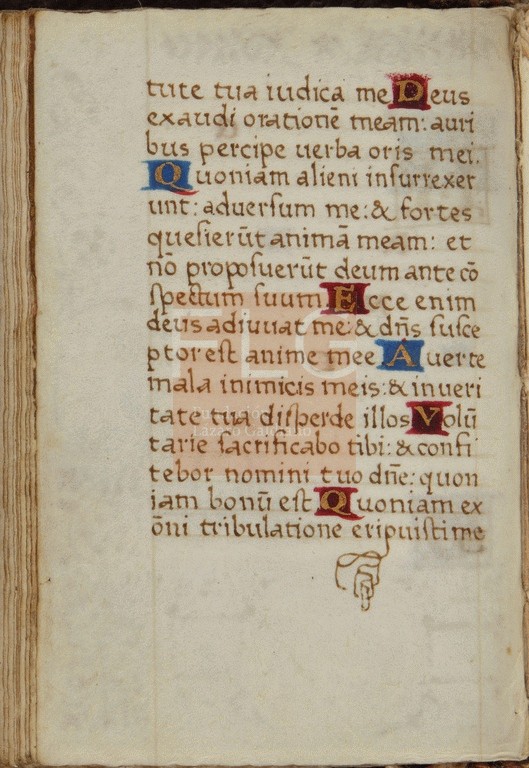 tute tua iudica me Deus
exaudi orationē meam: auri
bus percipe uerba oris mei.
Quoniam alieni insurrexer
unt: aduersum me: & fortes
quesierūt animā meam: et
nō proposuerūt deum ante cō
spectum suum. Ecce enim
deus adiuuat me: & dn̄s susce
ptor est anime mee Auerte
mala inimicis meis: & in ueri
tate tua disperde illos Volū
tarie sacrificabo tibi: & confi
tebor nomini tuo dn̄e: quon
iam bonū est Quoniam ex
ōni tribulatione eripuisti me
FLG
Lázaro Galdiano